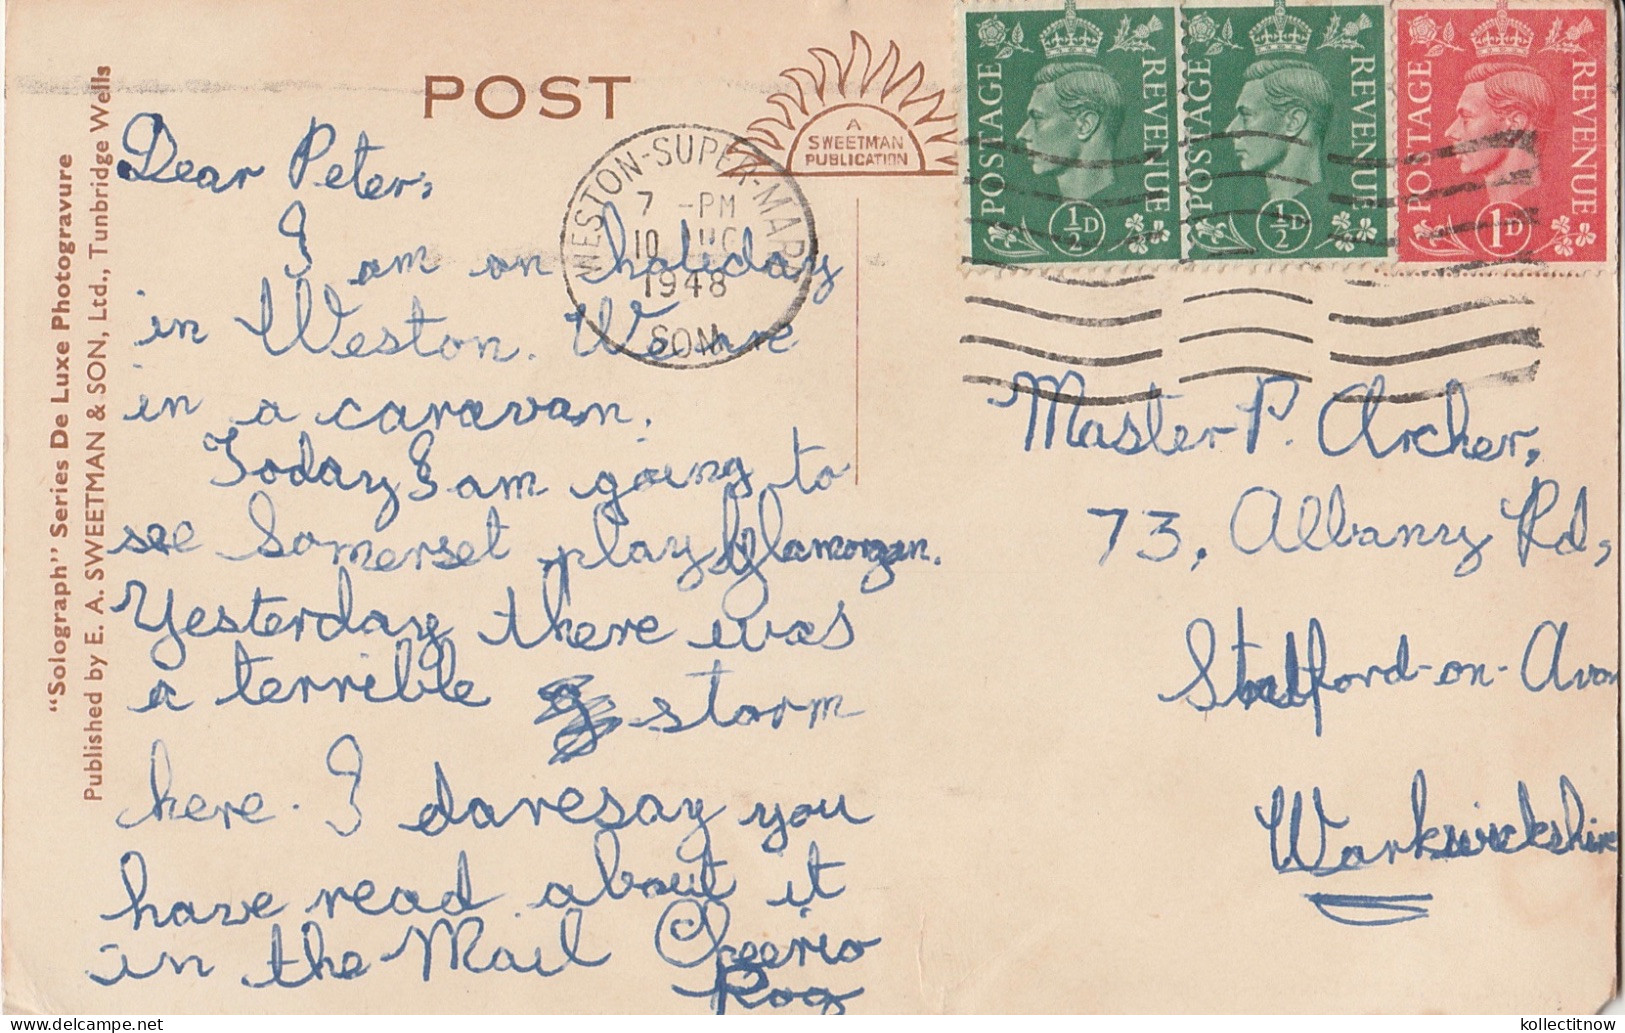 POST
A
SWEETMAN
PUBLICATION
POSTAGE
REVENUE
½D
POSTAGE
REVENUE
½D
POSTAGE
REVENUE
1D
WESTON-SUPER-MARE
7 -PM
10 AUG
1948
SOM
"Solograph" Series De Luxe Photogravure
Published by E. A. SWEETMAN & SON, Ltd., Tunbridge Wells
Dear Peter,
I am on holiday
in Weston. We are
in a caravan.
Today I am going to
see Somerset play Glamorgan.
Yesterday there was
a terrible storm
here. I daresay you
have read about it
in the Mail Cheerio
Rog
Master P. Archer,
73, Albany Rd,
Stratford-on-Avon
Warkwickshire
kollectitnow